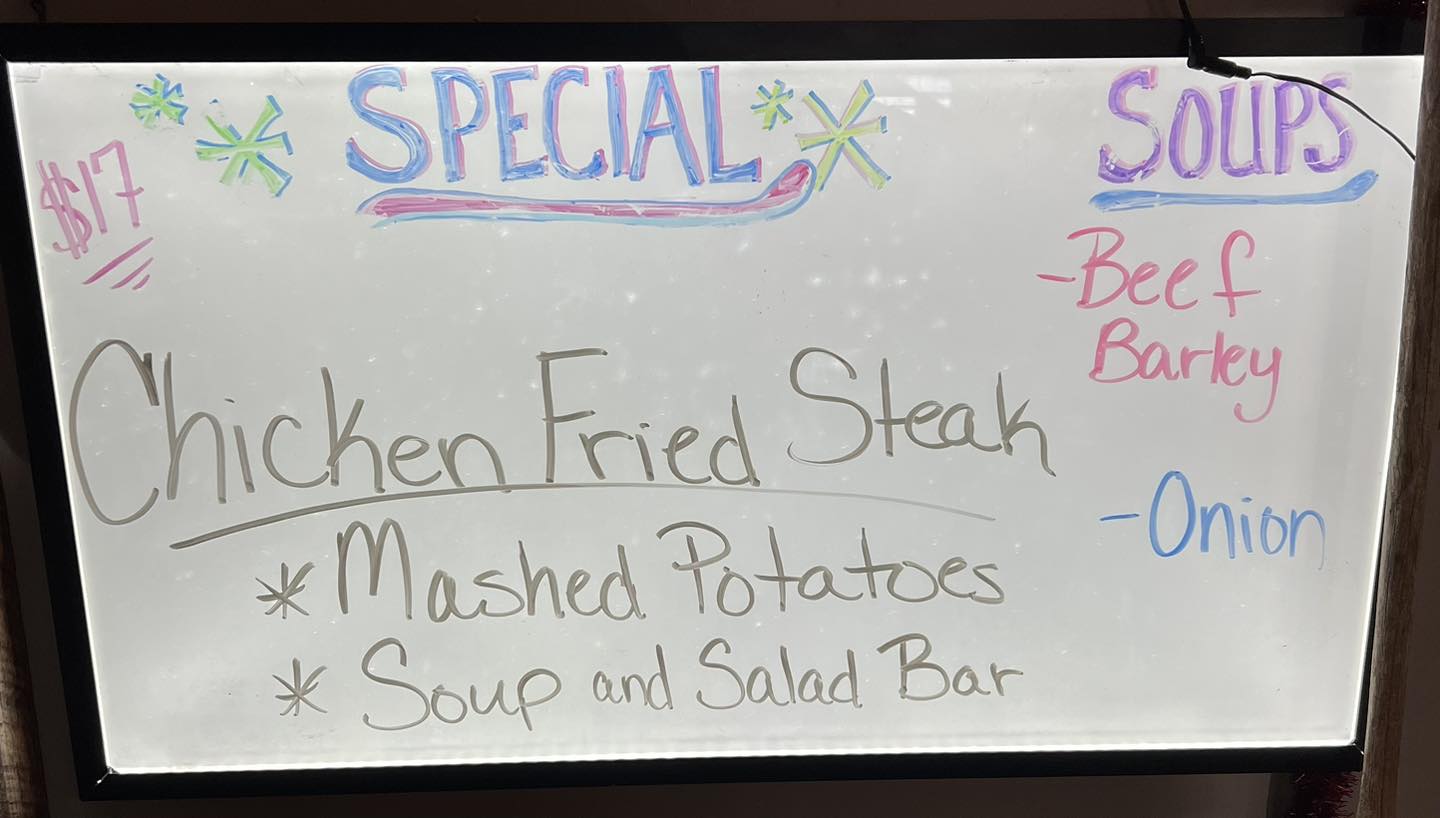 SPECIAL
$17
Chicken Fried Steak
* Mashed Potatoes
* Soup and Salad Bar
SOUPS
-Beef
Barley
-Onion